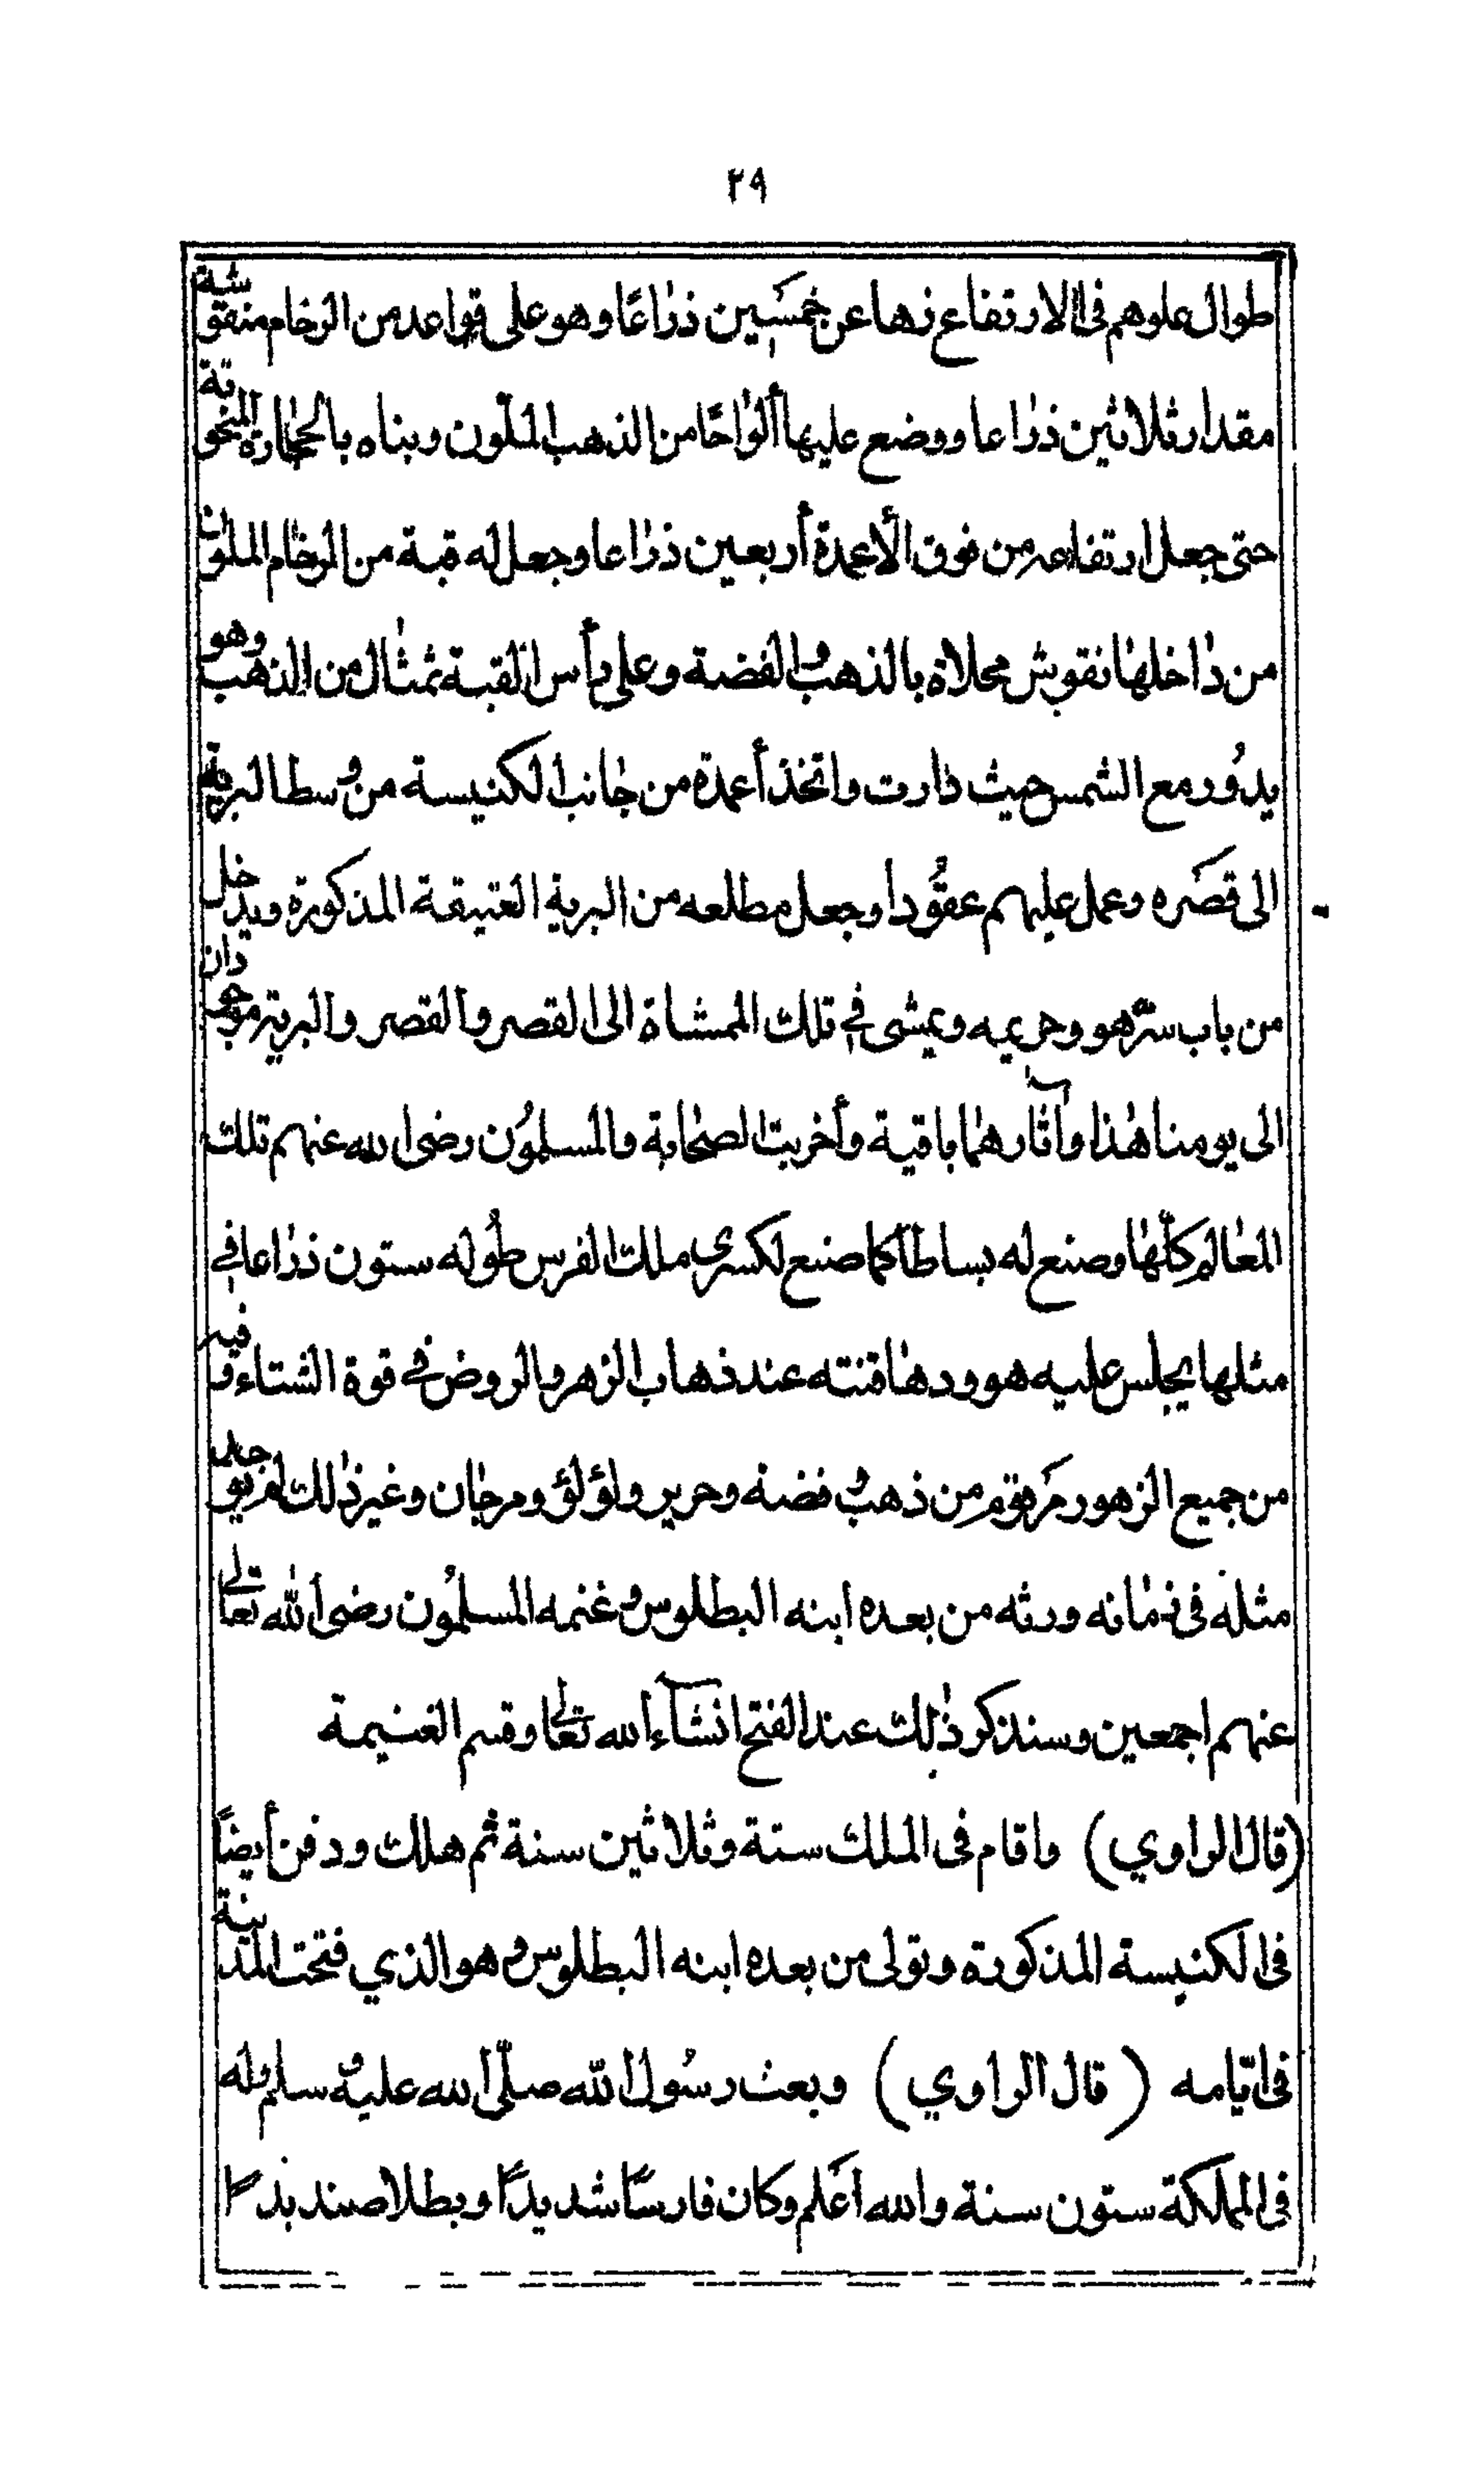 ٢٩
طوال علوهم في الارتفاع زهاعن خمسين ذراعًا وهو على قواعد من الرخام منقوشة
مقدار ثلاثين ذراعا ووضع عليها ألواحًا من الذهب الملّون وبناه بالحجارة المنحوتة
حتى جعل ارتفاعه من فوق الأعمدة أربعين ذراعا وجعل له قبة من الرخام الملون
من داخلها نقوش محلاة بالذهب والفضة وعلى رأس القبة تمثال من الذهب وهو
يدُور مع الشمس حيث دارت واتخذ أعمدة من جانب الكنيسة من وسط البرية
الى قصره وعمل عليهم عقُودا وجعل مطلعه من البرية العتيقة المذكورة ويدخل
من باب سرّ هو وحريمه ويمشى في تلك الممشاة الى القصر والقصر والبرية موجودان
الى يومنا هذا وآثارهما باقية وأخربت الصحابة والمسلمُون رضى الله عنهم تلك
المعالم كلّها وصنع له بساطا كما صنع لكسرى ملك الفرس طُوله ستون ذراعا في
مثلها يجلس عليه هو ودهاقنته عند ذهاب الزهر والروض في قوة الشتاء وفيه
من جميع الزهور مرقوم من ذهب وفضة وحرير ولؤلؤ ومرجان وغير ذلك لم يوجد
مثله في زمانه ورثه من بعده ابنه البطلوس وغنمه المسلمُون رضى الله تعالى
عنهم اجمعين وسنذكر ذلك عند الفتح انشآء الله تعالى وقسم الغنيمة
(قال الراوي) واقام في الملك ستة وثلاثين سنة ثم هلك ودفن أيضًا
في الكنيسة المذكورة وتولى من بعده ابنه البطلوس وهو الذي فتحت المدينة
في ايّامه (قال الراوي) وبعث رسُول الله صلّى الله عليه وسلم وله
في المملكة ستون سنة والله اعلم وكان فارسًا شديدًا وبطلا صنديدًا